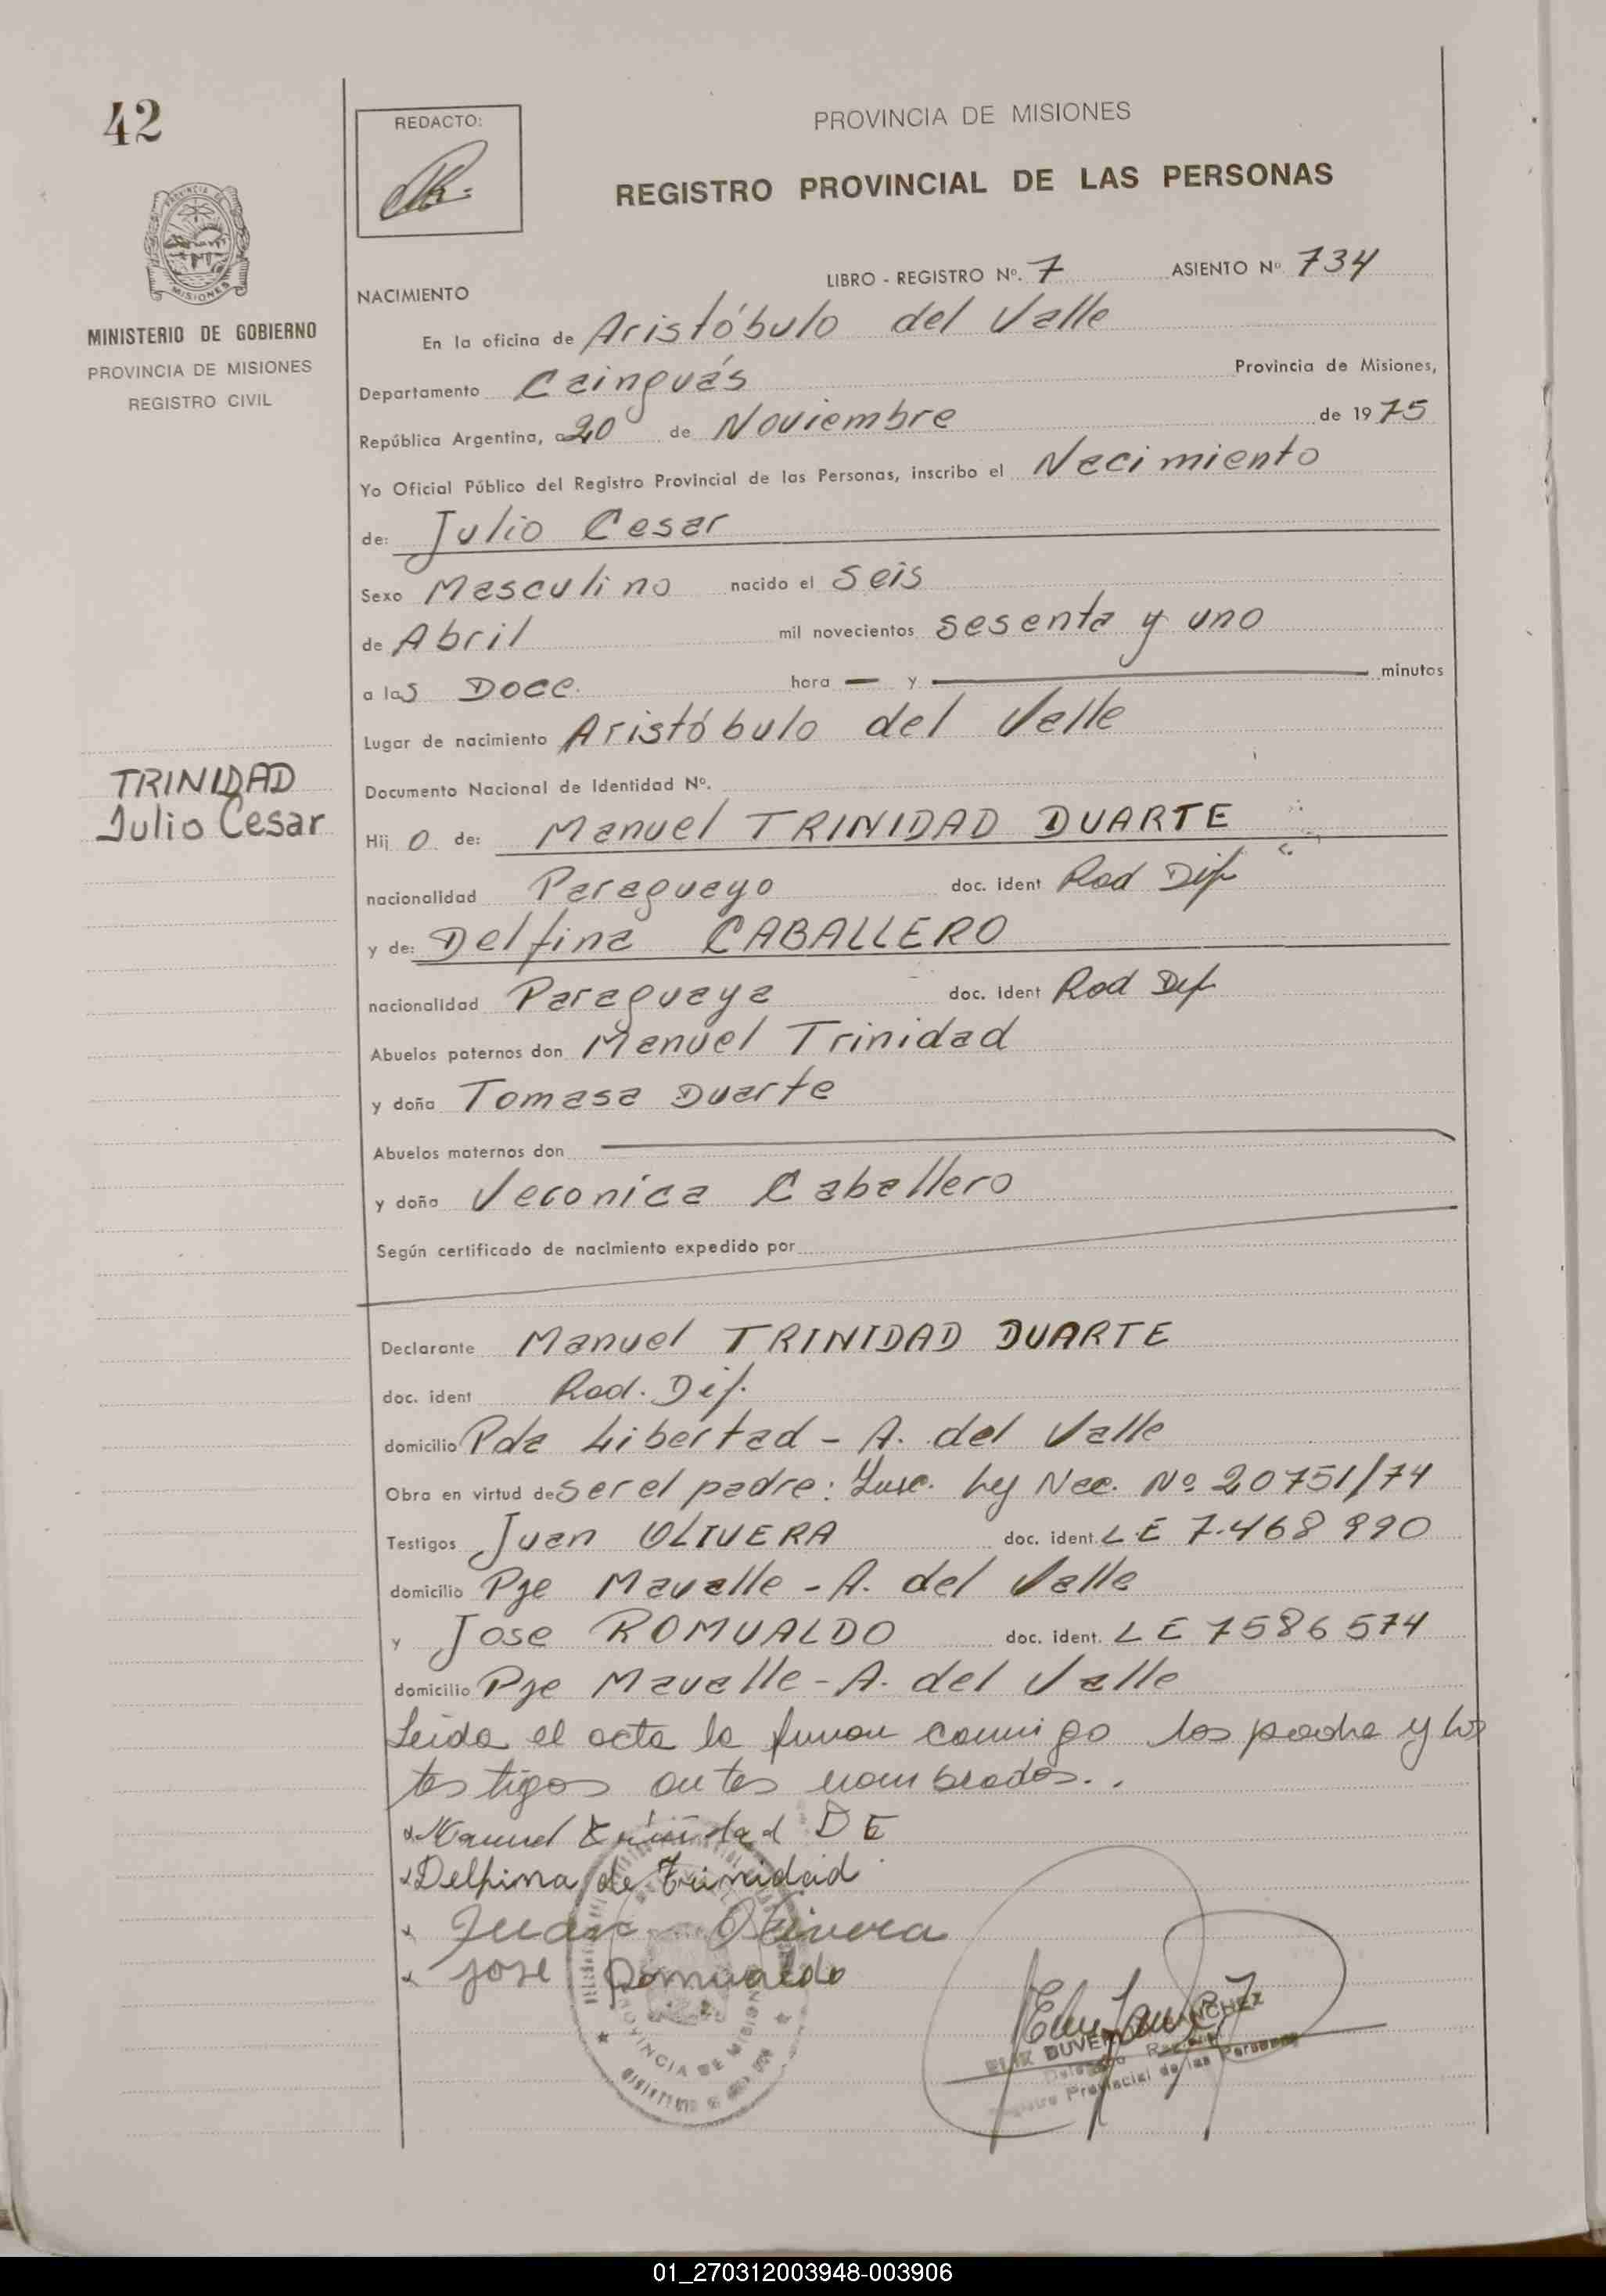 42
REDACTO:
PROVINCIA DE MISIONES
REGISTRO PROVINCIAL DE LAS PERSONAS
PROVINCIA
MISIONES
MINISTERIO DE GOBIERNO
PROVINCIA DE MISIONES
REGISTRO CIVIL
LIBRO - REGISTRO Nº. 7 ASIENTO Nº 734
NACIMIENTO
En la oficina de Aristóbulo del Valle
Departamento Cainguás Provincia de Misiones,
República Argentina, a 20 de Noviembre de 1975
Yo Oficial Público del Registro Provincial de las Personas, inscribo el Nacimiento
de: Julio Cesar
Sexo Masculino nacido el seis
de Abril mil novecientos sesenta y uno
a las Doce. hora — y — minutos
Lugar de nacimiento Aristóbulo del Valle
TRINIDAD
Julio Cesar
Documento Nacional de Identidad Nº.
Hij o de: Manuel TRINIDAD DUARTE
nacionalidad Paraguayo doc. ident Rad Dif
y de: Delfina CABALLERO
nacionalidad Paraguaya doc. ident Rad Dif
Abuelos paternos don Manuel Trinidad
y doña Tomasa Duarte
Abuelos maternos don —
y doña Veronica Caballero
Según certificado de nacimiento expedido por
Declarante Manuel TRINIDAD DUARTE
doc. ident Rad. Dif.
domicilio Pda Libertad - A. del Valle
Obra en virtud de ser el padre: Insc. Ley Nac. Nº 20751/74
Testigos Juan OLIVERA doc. ident. LE 7.468 990
domicilio Pje Mavalle - A. del Valle
y Jose ROMUALDO doc. ident. LE 7586574
domicilio Pje Mavalle - A. del Valle
Leida el acta la firman conmigo los padre y los
testigos antes nombrados..
Manuel Trinidad D E
Delfina de Trinidad
Juan Olivera
jose Romualdo
PROVINCIA DE MISIONES
DUVER SANCHEZ
Registro Provincial de las Personas
01_270312003948-003906